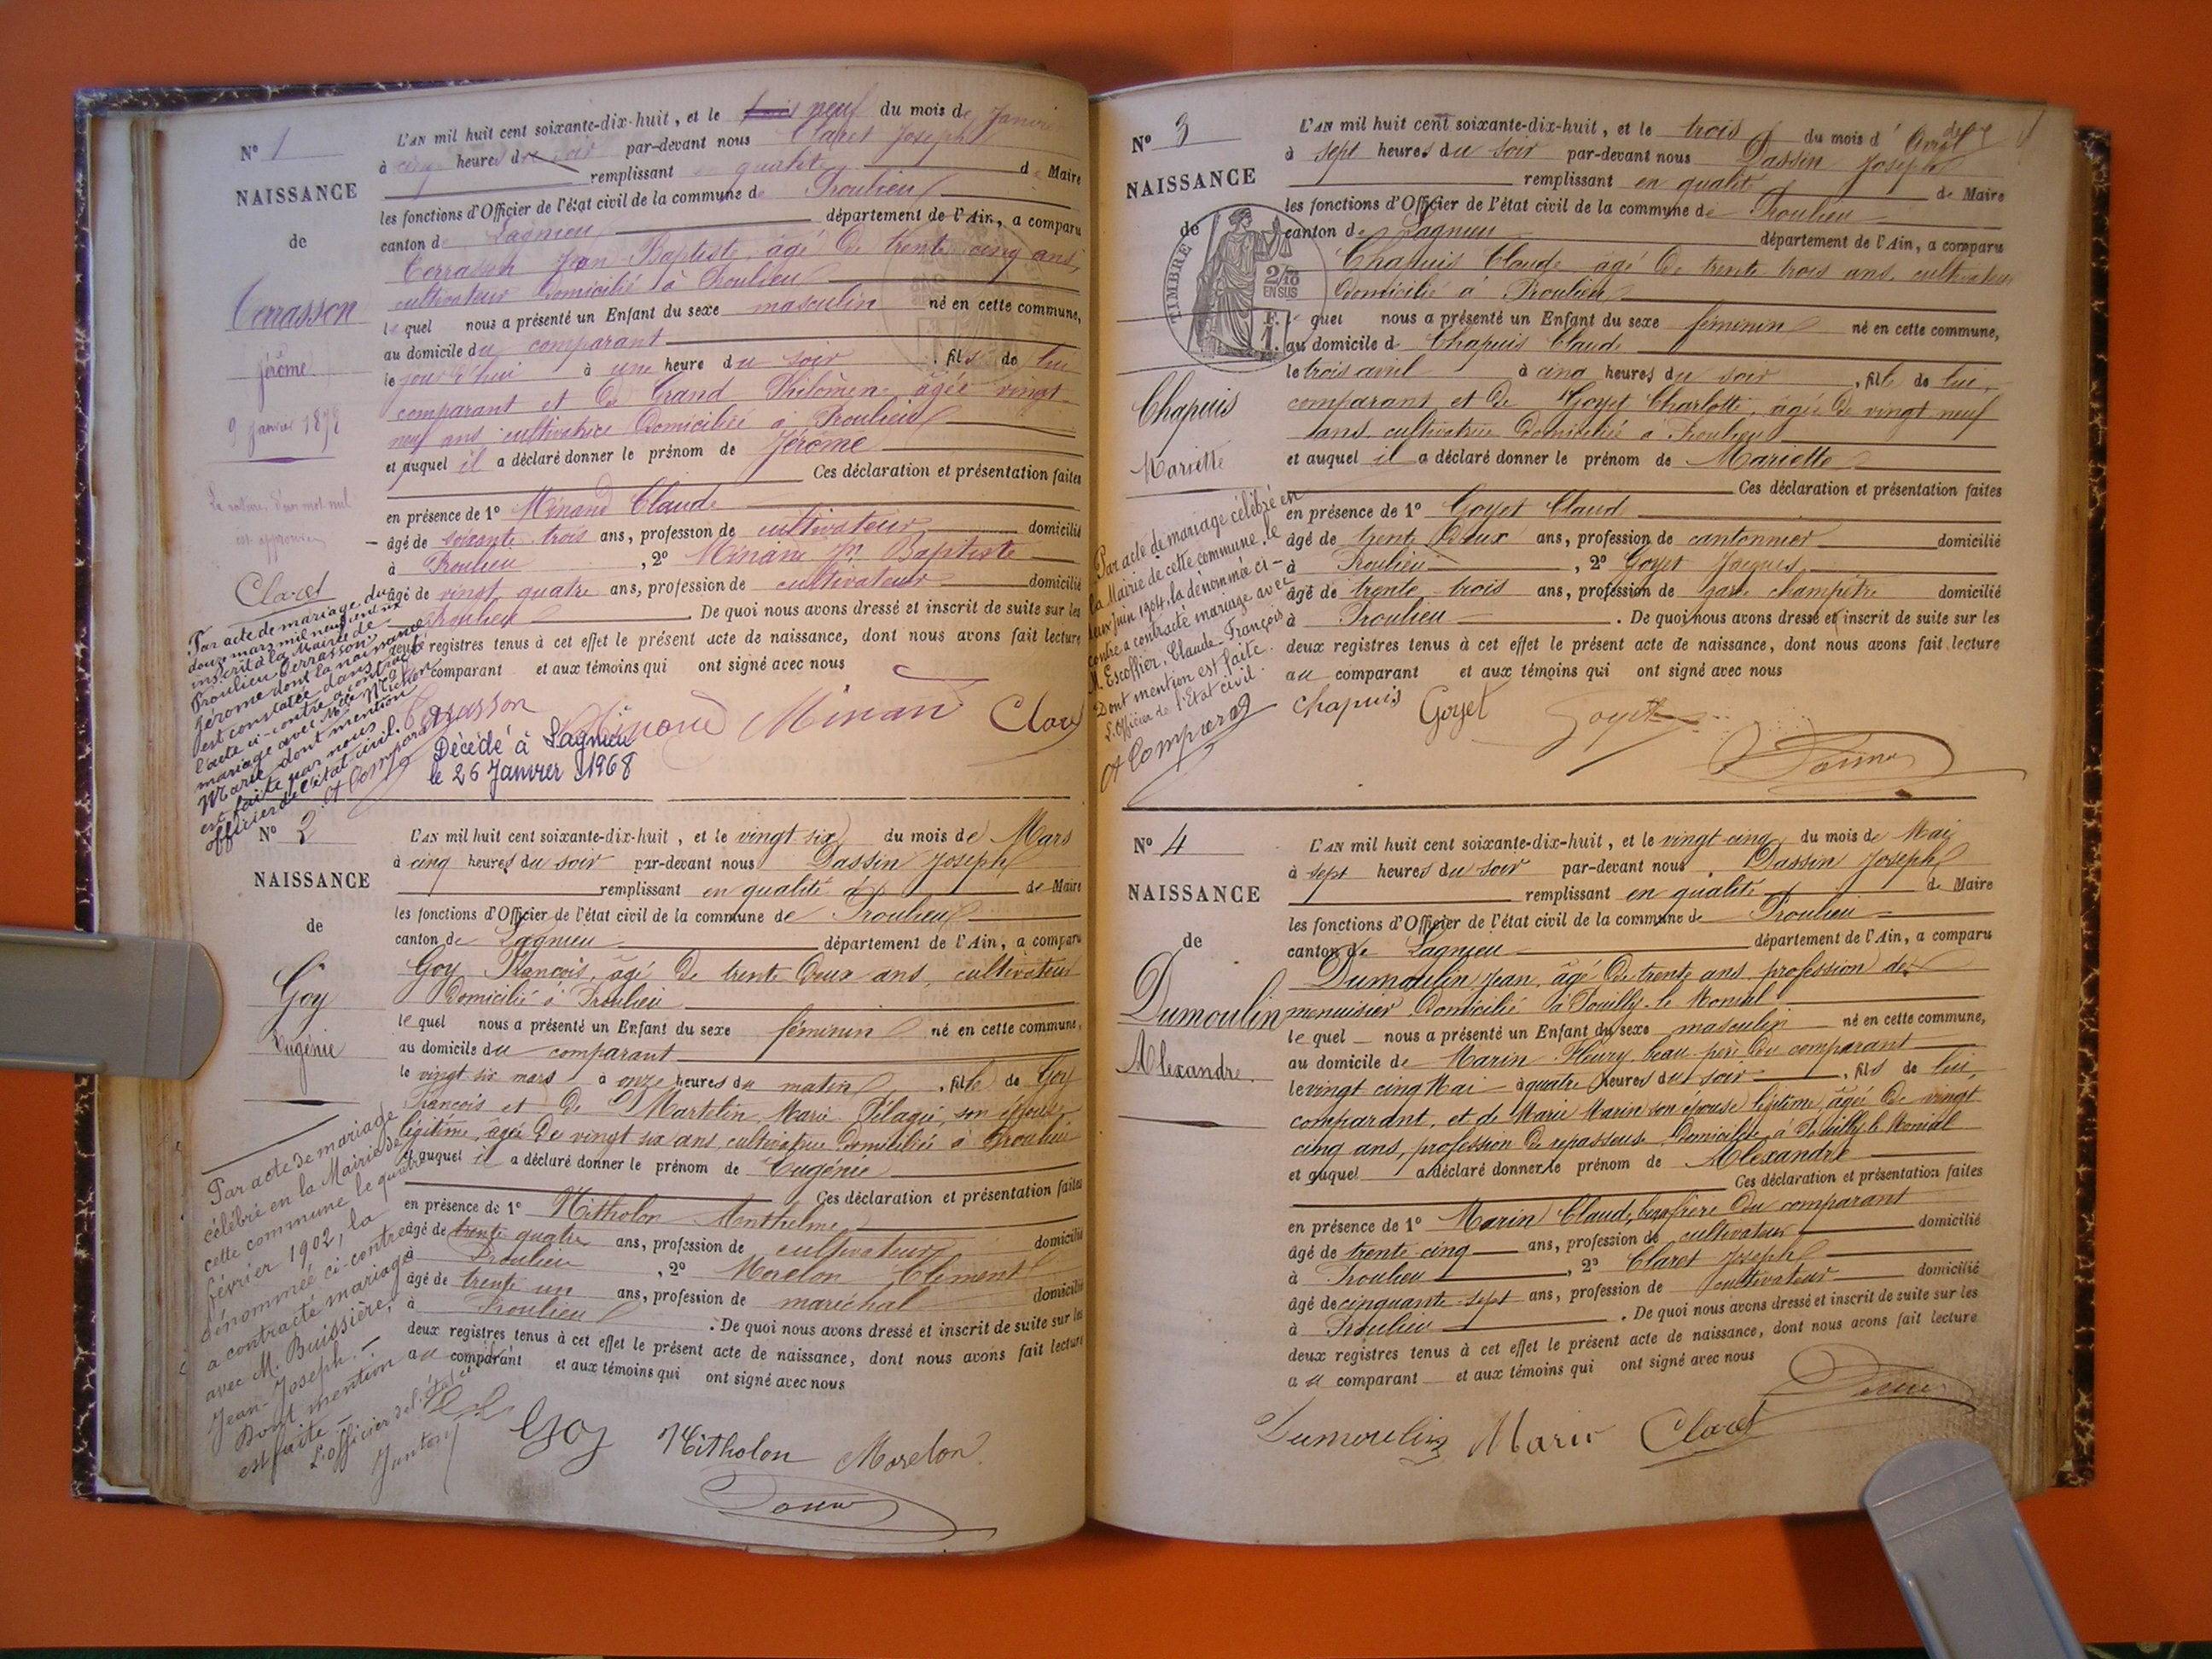 N° 1
NAISSANCE
de
Terrasson
Jérôme
9 Janvier 1878
La rature d'un mot nul
est approuvée
Claret
Par acte de mariage du
douze mars mil neuf cent six
inscrit à la Mairie de
Proulieu Terrasson
Jérome dont la naissance
est constatée dans
l'acte ci-contre a contracté
mariage avec Mlle
Marie dont mention
est faite par nous
officier de l'état civil.
L'AN mil huit cent soixante-dix-huit, et le trois neuf du mois de Janvier
à cinq heures du soir par-devant nous Claret Joseph
remplissant en qualité de Maire
les fonctions d'Officier de l'état civil de la commune de Proulieu
canton de Lagnieu département de l'Ain, a comparu
Terrasson Jean-Baptiste, âgé de trente cinq ans,
cultivateur domicilié à Proulieu
lequel nous a présenté un Enfant du sexe masculin né en cette commune,
au domicile du comparant
le jour d'hui à une heure du soir, fils de lui
comparant et de Grand Philomène âgée vingt
neuf ans cultivatrice domiciliée à Proulieu
et auquel il a déclaré donner le prénom de Jérôme
Ces déclaration et présentation faites
en présence de 1° Minand Claude
âgé de soixante trois ans, profession de cultivateur domicilié
à Proulieu, 2° Minand Jn Baptiste
âgé de vingt quatre ans, profession de cultivateur domicilié
Proulieu. De quoi nous avons dressé et inscrit de suite sur les
deux registres tenus à cet effet le présent acte de naissance, dont nous avons fait lecture
comparant et aux témoins qui ont signé avec nous
Terrasson Minand Minand Claret
Décédé à Lagnieu
le 26 Janvier 1968
N° 2
NAISSANCE
de
Goy
Eugénie
Par acte de mariage
célébré en la Mairie de
cette commune le quatre
février 1902, la
dénommée ci-contre
a contracté mariage
avec M. Buissière,
Jean-Joseph.-
Dont mention
est faite-
L'officier de l'état civil
L'AN mil huit cent soixante-dix-huit, et le vingt six du mois de Mars
à cinq heures du soir par-devant nous Passin Joseph
remplissant en qualité de Maire
les fonctions d'Officier de l'état civil de la commune de Proulieu
canton de Lagnieu département de l'Ain, a comparu
Goy François, âgé de trente deux ans, cultivateur
domicilié à Proulieu
lequel nous a présenté un Enfant du sexe féminin né en cette commune,
au domicile du comparant
le vingt six mars à onze heures du matin, fille de Goy
François et de Martelin Marie Pélagie, son épouse
légitime, âgée de vingt six ans, cultivatrice domiciliée à Proulieu
et auquel il a déclaré donner le prénom de Eugénie
Ces déclaration et présentation faites
en présence de 1° Mitholon Anthelme
âgé de trente quatre ans, profession de cultivateur domicilié
à Proulieu, 2° Morelon Clément
âgé de trente un ans, profession de maréchal domicilié
à Proulieu. De quoi nous avons dressé et inscrit de suite sur les
deux registres tenus à cet effet le présent acte de naissance, dont nous avons fait lecture
au comparant et aux témoins qui ont signé avec nous
Goy Mitholon Morelon
N° 3
NAISSANCE
de
TIMBRE
2/10
EN SUS
Chapuis
Mariette
Par acte de mariage célébré en
la Mairie de cette commune le
deux juin 1904, la dénommée ci-
contre a contracté mariage avec
M. Escoffier, Claude-François.
Dont mention est faite.
L'Officier de l'Etat civil.
L'AN mil huit cent soixante-dix-huit, et le trois du mois d'Avril
à sept heures du soir par-devant nous Passin Joseph
remplissant en qualité de Maire
les fonctions d'Officier de l'état civil de la commune de Proulieu
canton de Lagnieu département de l'Ain, a comparu
Chapuis Claude âgé de trente trois ans, cultivateur
domicilié à Proulieu
le quel nous a présenté un Enfant du sexe féminin né en cette commune,
au domicile d Chapuis Claude
le trois avril à cinq heures du soir, fille de lui,
comparant et de Goyet Charlotte, âgée de vingt neuf
ans, cultivatrice domiciliée à Proulieu
et auquel il a déclaré donner le prénom de Mariette
Ces déclaration et présentation faites
en présence de 1° Goyet Claude
âgé de trente deux ans, profession de cantonnier domicilié
à Proulieu, 2° Goyet Jacques
âgé de trente trois ans, profession de garde champêtre domicilié
à Proulieu. De quoi nous avons dressé et inscrit de suite sur les
deux registres tenus à cet effet le présent acte de naissance, dont nous avons fait lecture
au comparant et aux témoins qui ont signé avec nous
Chapuis Goyet Goyet
N° 4
NAISSANCE
de
Dumoulin
Alexandre
L'AN mil huit cent soixante-dix-huit, et le vingt cinq du mois de Mai
à sept heures du soir par-devant nous Passin Joseph
remplissant en qualité de Maire
les fonctions d'Officier de l'état civil de la commune de Proulieu
canton de Lagnieu département de l'Ain, a comparu
Dumoulin Jean, âgé de trente ans, profession de
menuisier domicilié à Pouilly-le Monial
le quel nous a présenté un Enfant du sexe masculin né en cette commune,
au domicile de Marin Fleury beau-père du comparant
le vingt cinq Mai à quatre heures du soir, fils de lui,
comparant, et de Marie Marin son épouse légitime, âgée de vingt
cinq ans, profession de repasseuse domiciliée à Pouilly-le Monial
et auquel a déclaré donner le prénom de Alexandre
Ces déclaration et présentation faites
en présence de 1° Marin Claude, beau-frère du comparant
âgé de trente cinq ans, profession de cultivateur domicilié
à Proulieu, 2° Claret Joseph
âgé de cinquante-sept ans, profession de cultivateur domicilié
à Proulieu. De quoi nous avons dressé et inscrit de suite sur les
deux registres tenus à cet effet le présent acte de naissance, dont nous avons fait lecture
au comparant et aux témoins qui ont signé avec nous
Dumoulin Marin Claret